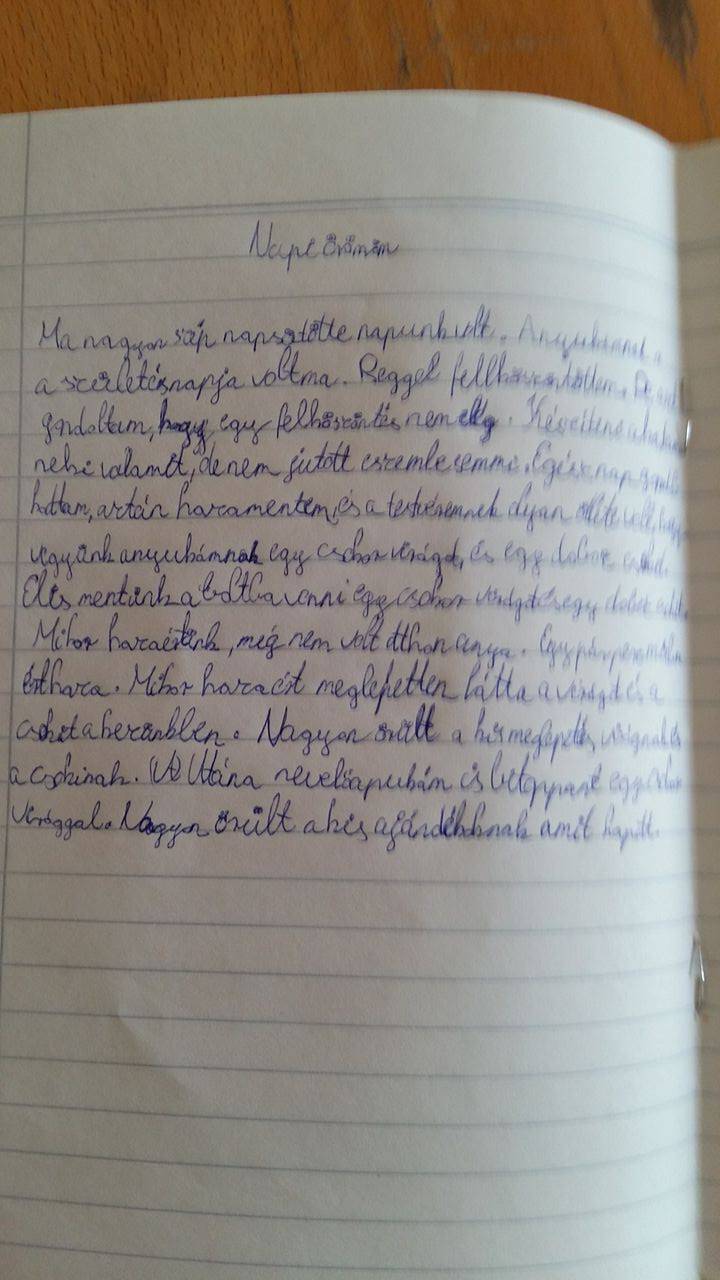 Napi örömöm
Ma nagyon szép napsütötte napunk volt. Anyukámnak a
a születésnapja volt ma. Reggel fellköszöntöttem. De
gondoltam, hogy egy felköszöntés nem elég. Készíteni akartam
neki valamit, de nem jutott eszembe semmi. Egész nap
hottam, aztán haza mentem, és a testvéremnek olyan ötlete volt, hogy
vegyünk anyukámnak egy csokor virágot, és egy doboz csokit.
El is mentünk a boltba venni egy csokor virágot és egy doboz
Mikor hazaértünk, még nem volt otthon anya. Egy pár perc múlva
ért haza. Mikor hazaért meglepetten látta a virágot és a
csokit a kezünkben. Nagyon örült a kis meglepetés virágnak és
a csokinak. Utána nevelőapukám is betoppant egy csokor
virággal. Nagyon örült a kis ajándékoknak amit kapott.